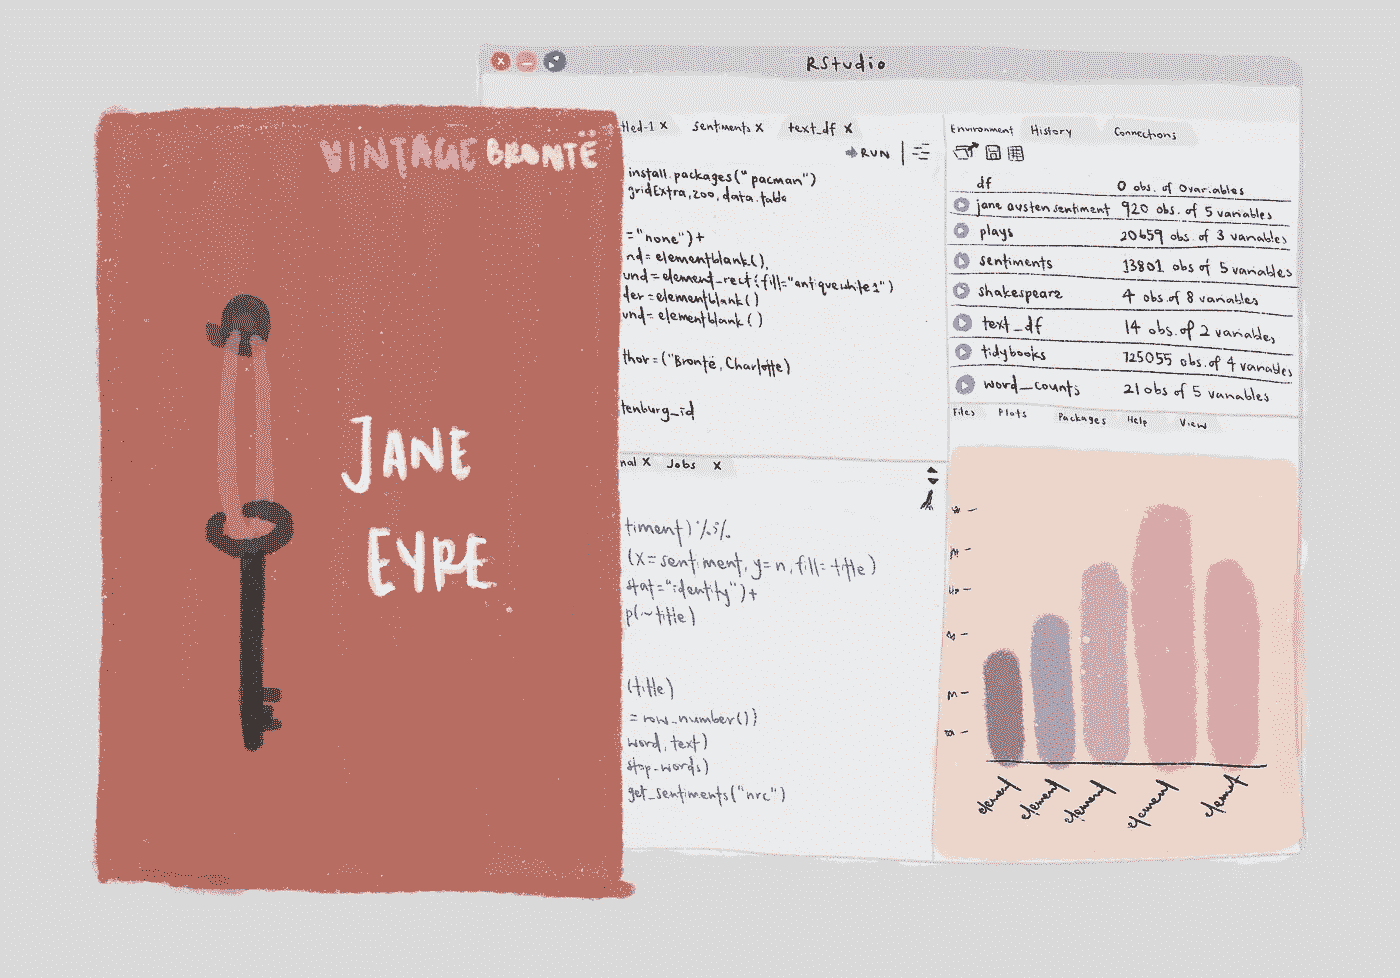 VINTAGE BRONTË
JANE
EYRE
RStudio
tled-1 x sentiments x text_df x
RUN
install.packages("pacman")
gridExtra,zoo,data.table
="none")+
nd=elementblank(),
und=element_rect(fill="antiquewhite1")
der=elementblank()
und=elementblank()
thor=("Brontë, Charlotte)
tenburg_id
nal x Jobs x
timent)%>%
(x=sentiment, y=n, fill=title)
stat="identity")+
p(~title)
(title)
=row_number())
word, text)
stop_words)
get_sentiments("nrc")
Environment History Connections
df 0 obs. of 0variables
jane austen sentiment 920 obs. of 5 variables
plays 20659 obs. of 3 variables
sentiments 13801 obs of 5 variables
shakespeare 4 obs. of 8 variables
text_df 14 obs. of 2 variables
tidybooks 725055 obs. of 4 variables
word_counts 21 obs of 5 variables
Files Plots Packages Help View
element element element element element